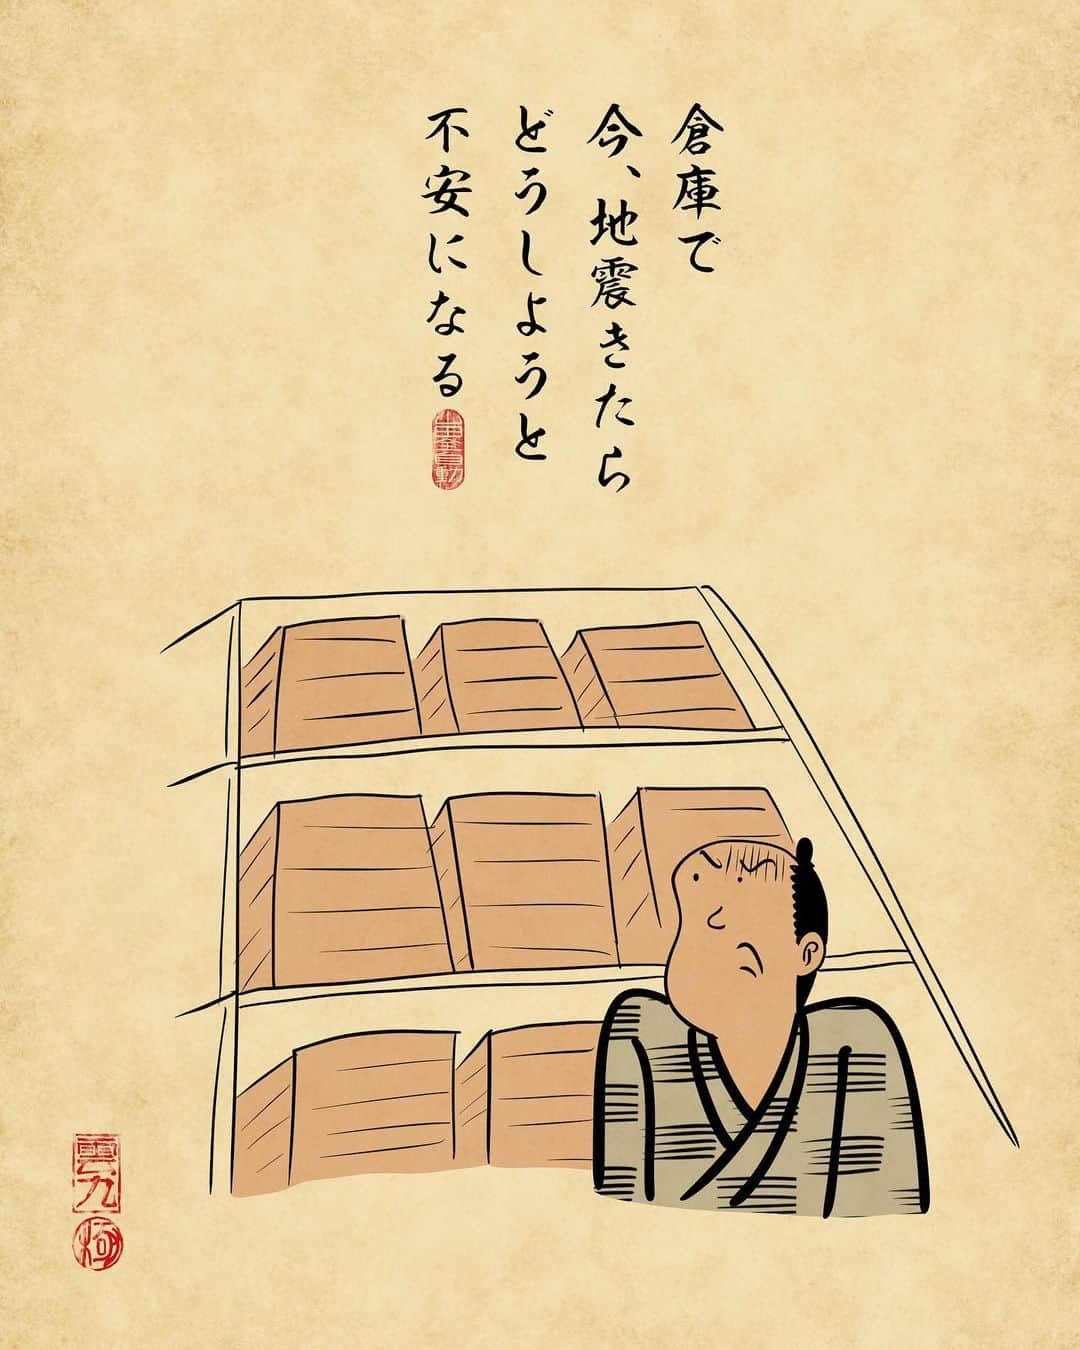 倉庫で
今、地震きたら
どうしようと
不安になる